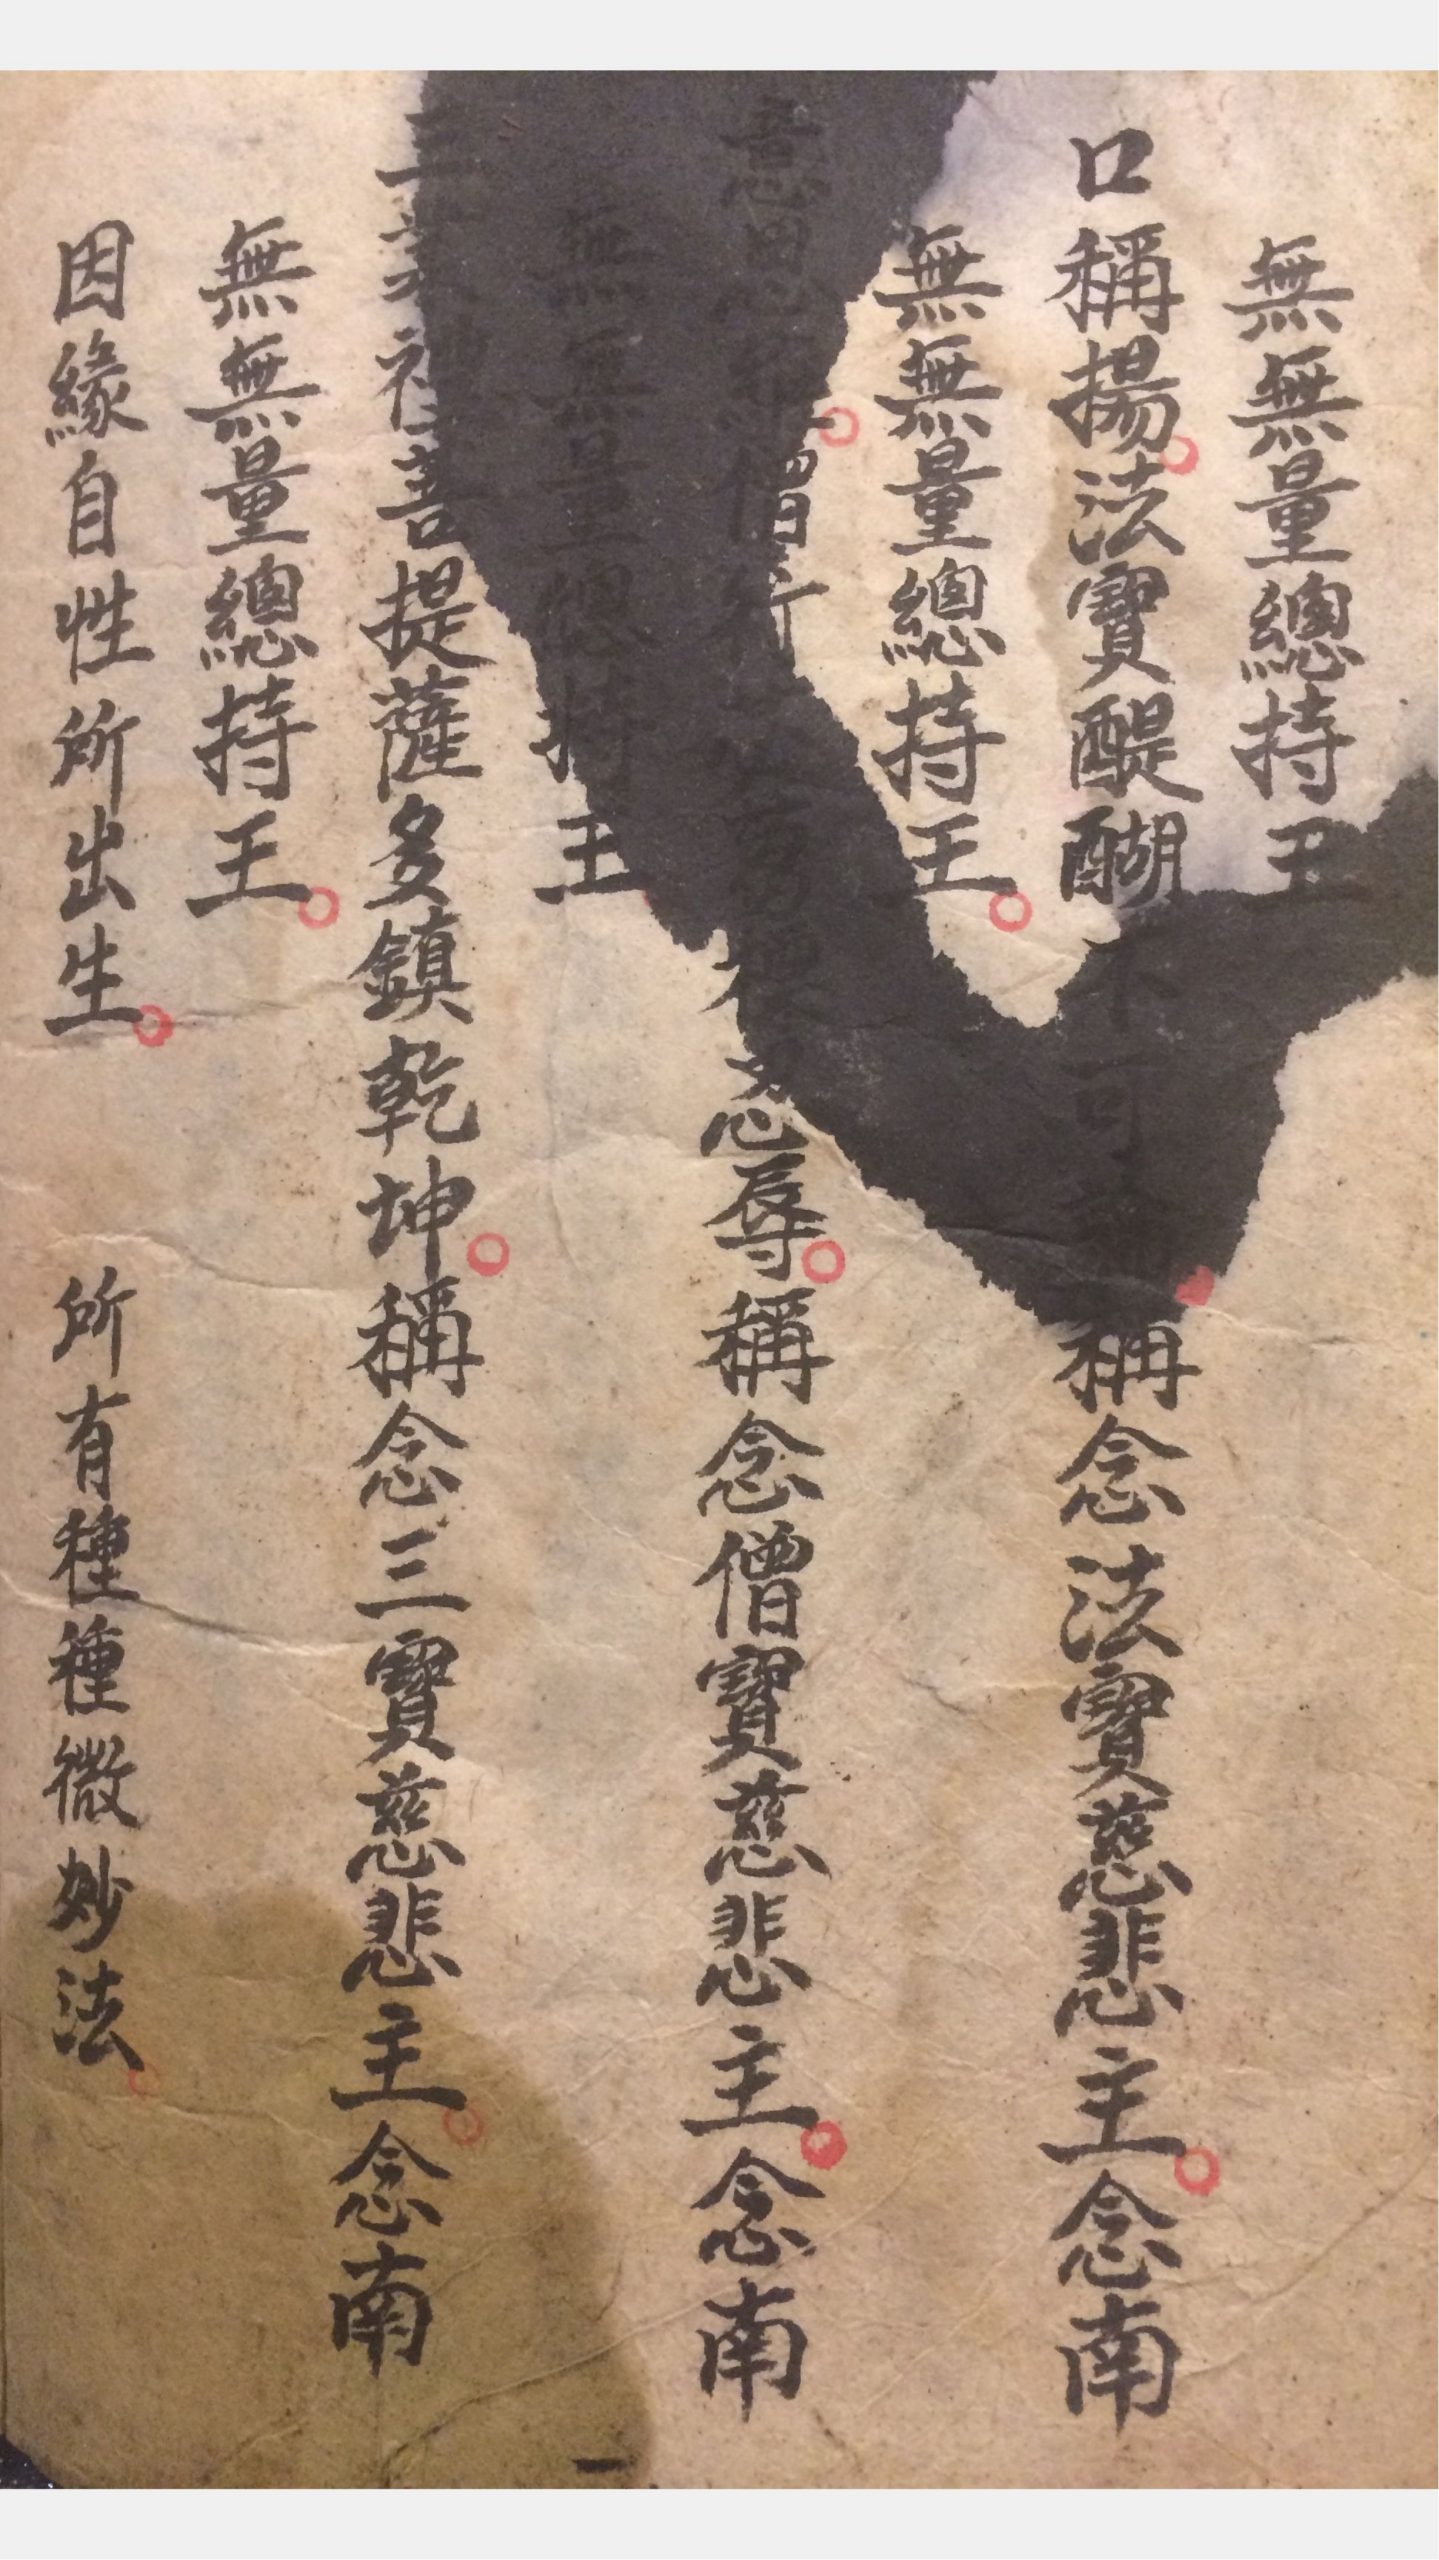 無無量總持王
口稱揚。法寶醍醐不可稱念法寶慈悲主。念南
無無量總持王。
意思惟。僧行忍辱。稱念僧寶慈悲主。念南
無無量總持王
三業禮菩提薩多鎮乾坤。稱念三寶慈悲主。念南
無無量總持王。
因緣自性所出生。 所有種種微妙法。